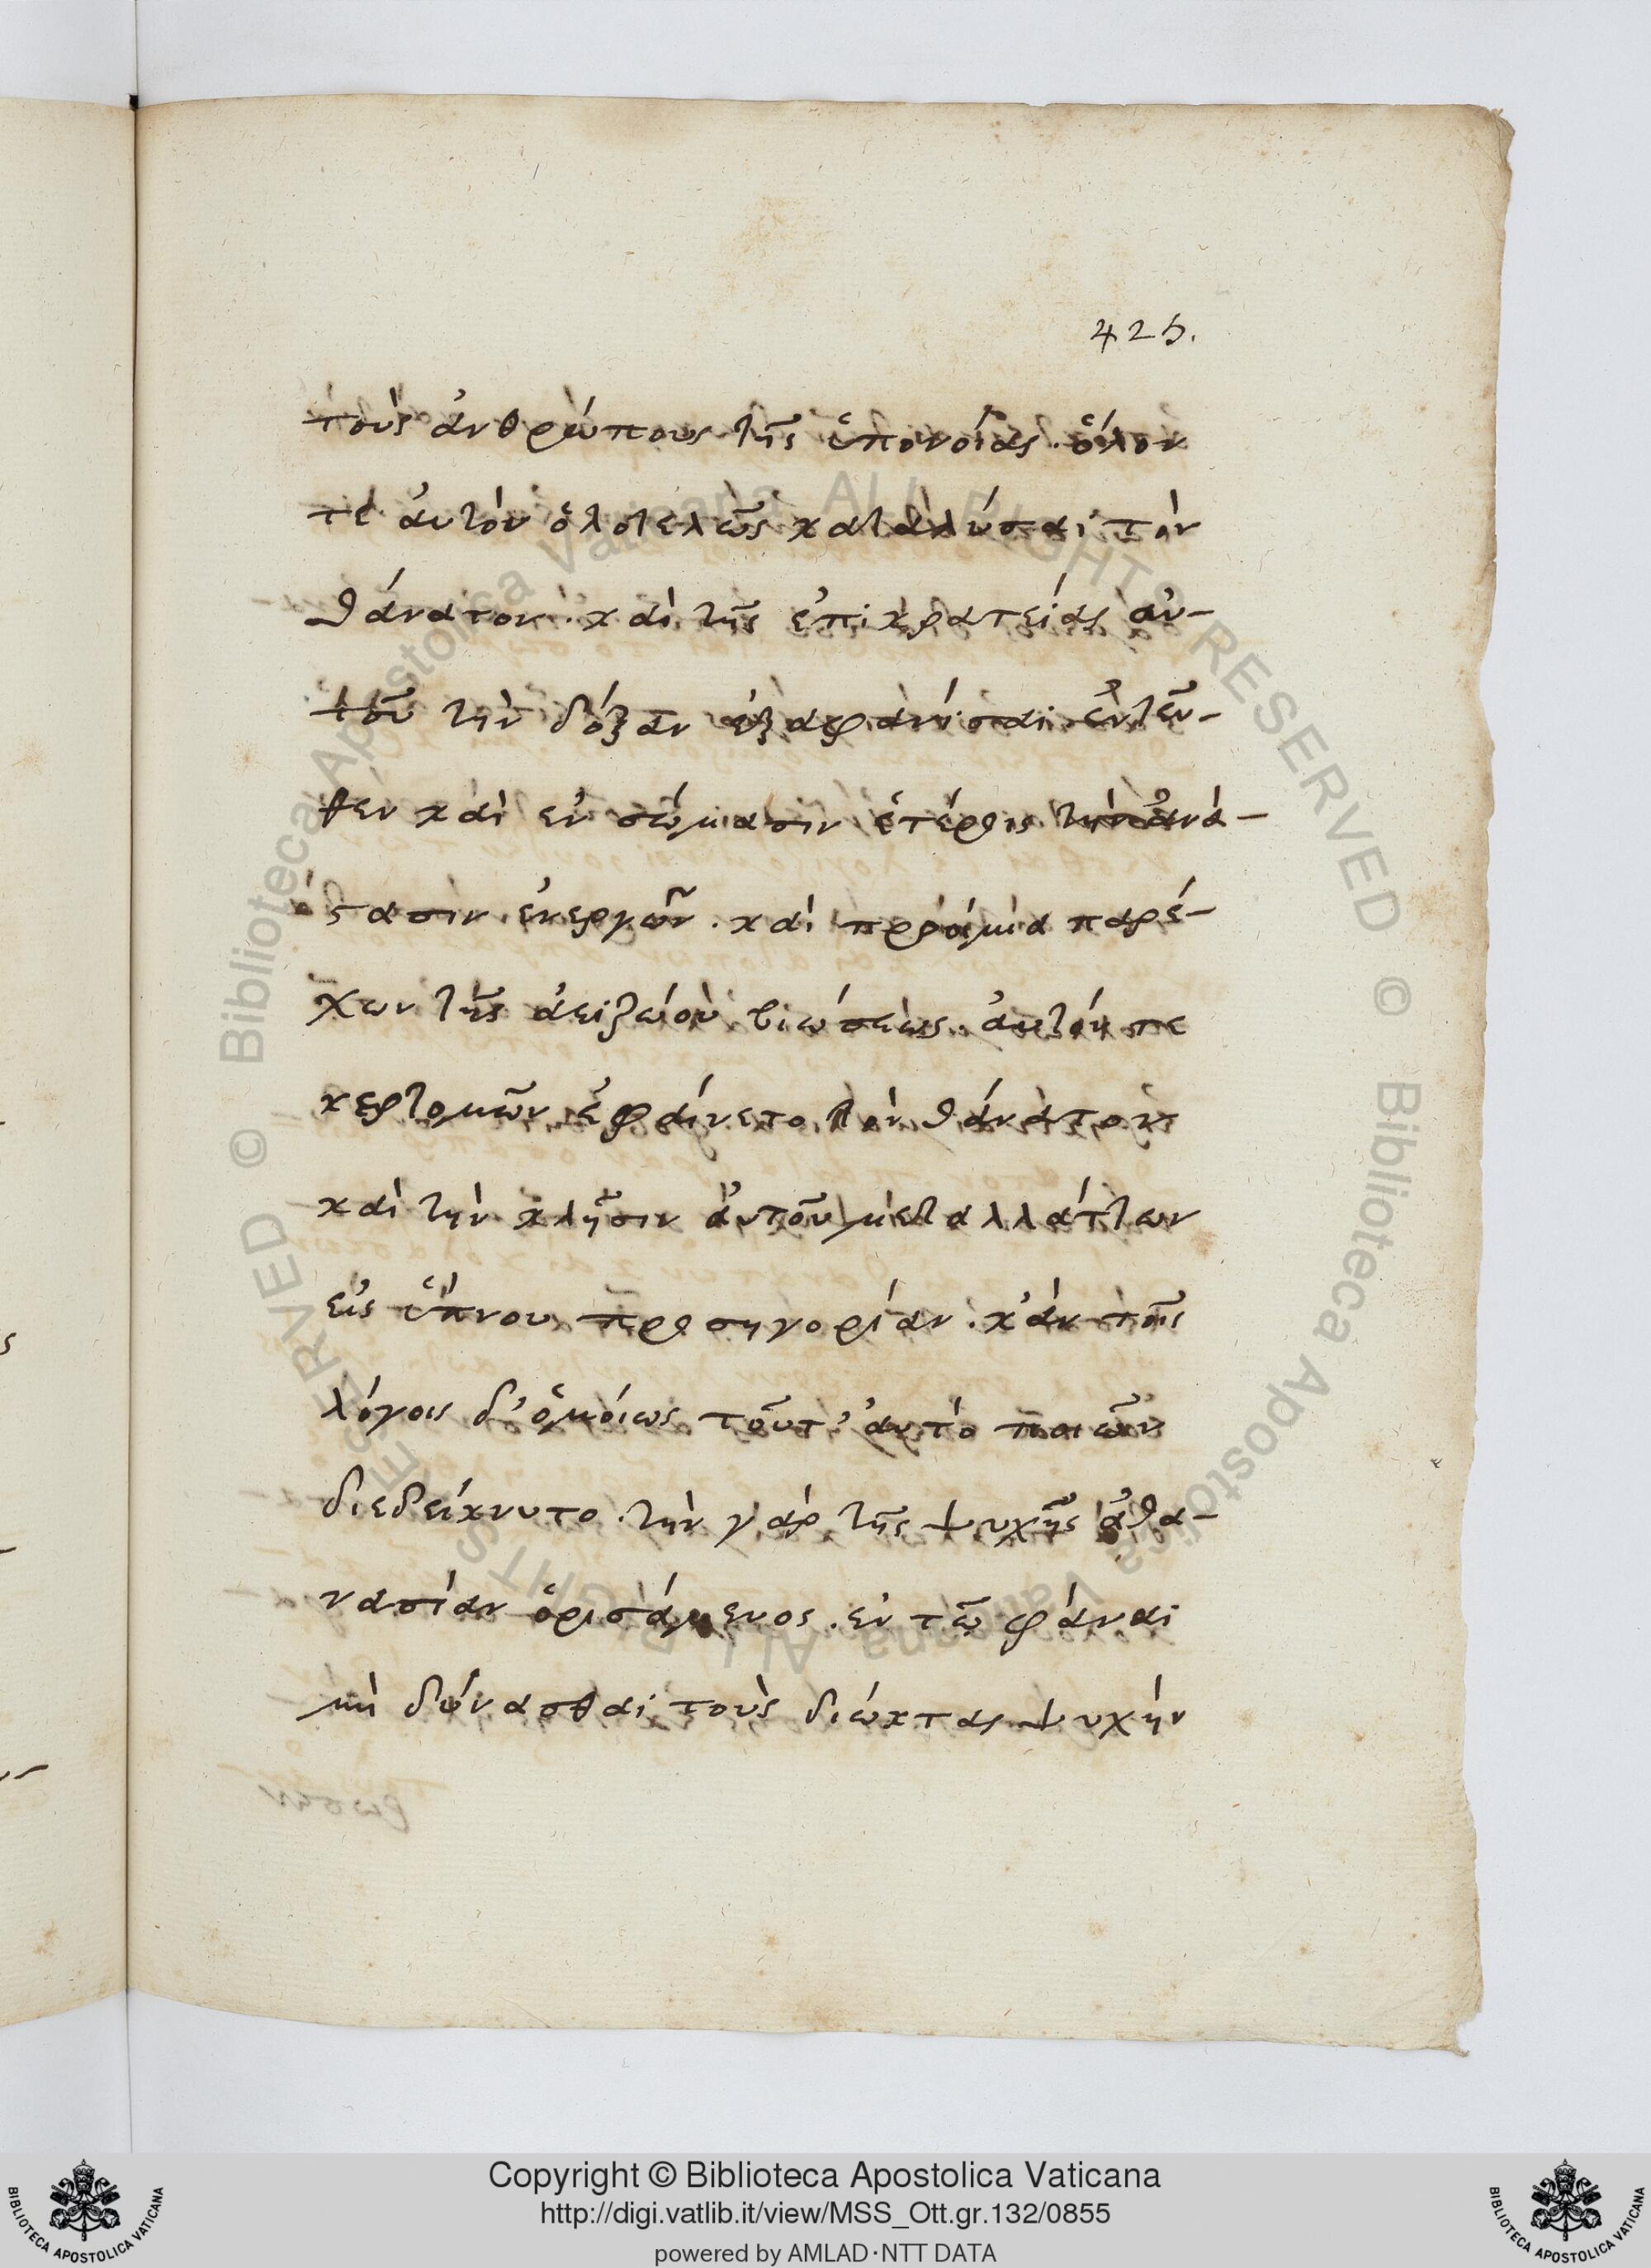 425.
τοὺς ἀνθρώπους τῆς ὑπονοίας. ὅλον
τὲ αὐτὸν ὁλοτελῶς καταλύσαι τὸν
θάνατον. καὶ τῆς ἐπικρατείας αὐ-
τοῦ τὴν δόξαν ἐξαφανίσαι ἐντεῦ-
θεν καὶ ἐν σώμασιν ἑτέροις τὴν ἀνά-
στασιν ἐνεργῶν. καὶ προοίμια παρέ-
χων τῆς ἀειζώου βιώσεως. αὐτόν τε
κερτομῶν ἐφαίνετο τὸν θάνατον
καὶ τὴν κλῆσιν αὐτοῦ μεταλλάττων
εἰς ὕπνου προσηγορίαν. κἀν τοῖς
λόγοις δ' ὁμοίως τοῦτ' αὐτὸ ποιῶν
διεδείκνυτο. τὴν γὰρ τῆς ψυχῆς ἀθα-
νασίαν ὁρισάμενος. ἐν τῶ φάναι
μὴ δύνασθαι τοὺς διώκτας ψυχὴν
© Biblioteca Apostolica Vaticana ALL RIGHTS RESERVED © Biblioteca Apostolica Vaticana ALL RIGHTS RESERVED
Copyright © Biblioteca Apostolica Vaticana
http://digi.vatlib.it/view/MSS_Ott.gr.132/0855
powered by AMLAD·NTT DATA
BIBLIOTECA APOSTOLICA VATICANA
BIBLIOTECA APOSTOLICA VATICANA